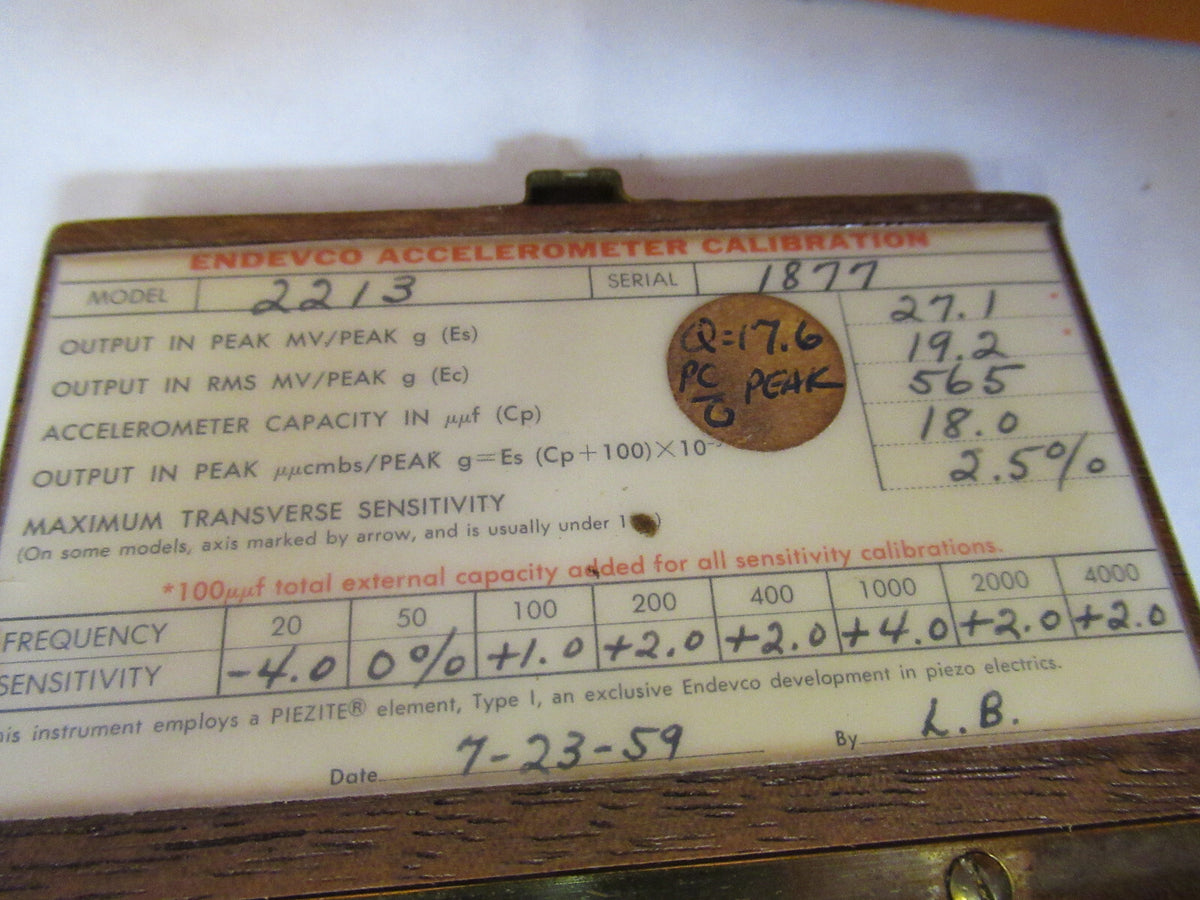 ENDEVCO ACCELEROMETER CALIBRATION
MODEL 2213 SERIAL 1877
OUTPUT IN PEAK MV/PEAK g (Es) 27.1 *
OUTPUT IN RMS MV/PEAK g (Ec) 19.2 *
ACCELEROMETER CAPACITY IN μμf (Cp) 565
OUTPUT IN PEAK μμcmbs/PEAK g=Es (Cp+100)×10 18.0
Q=17.6
PC/G PEAK
MAXIMUM TRANSVERSE SENSITIVITY 2.5%
(On some models, axis marked by arrow, and is usually under )
*100μμf total external capacity added for all sensitivity calibrations.
FREQUENCY 20 50 100 200 400 1000 2000 4000
SENSITIVITY -4.0 0% +1.0 +2.0 +2.0 +4.0 +2.0 +2.0
his instrument employs a PIEZITE® element, Type I, an exclusive Endevco development in piezo electrics.
Date 7-23-59 By L.B.